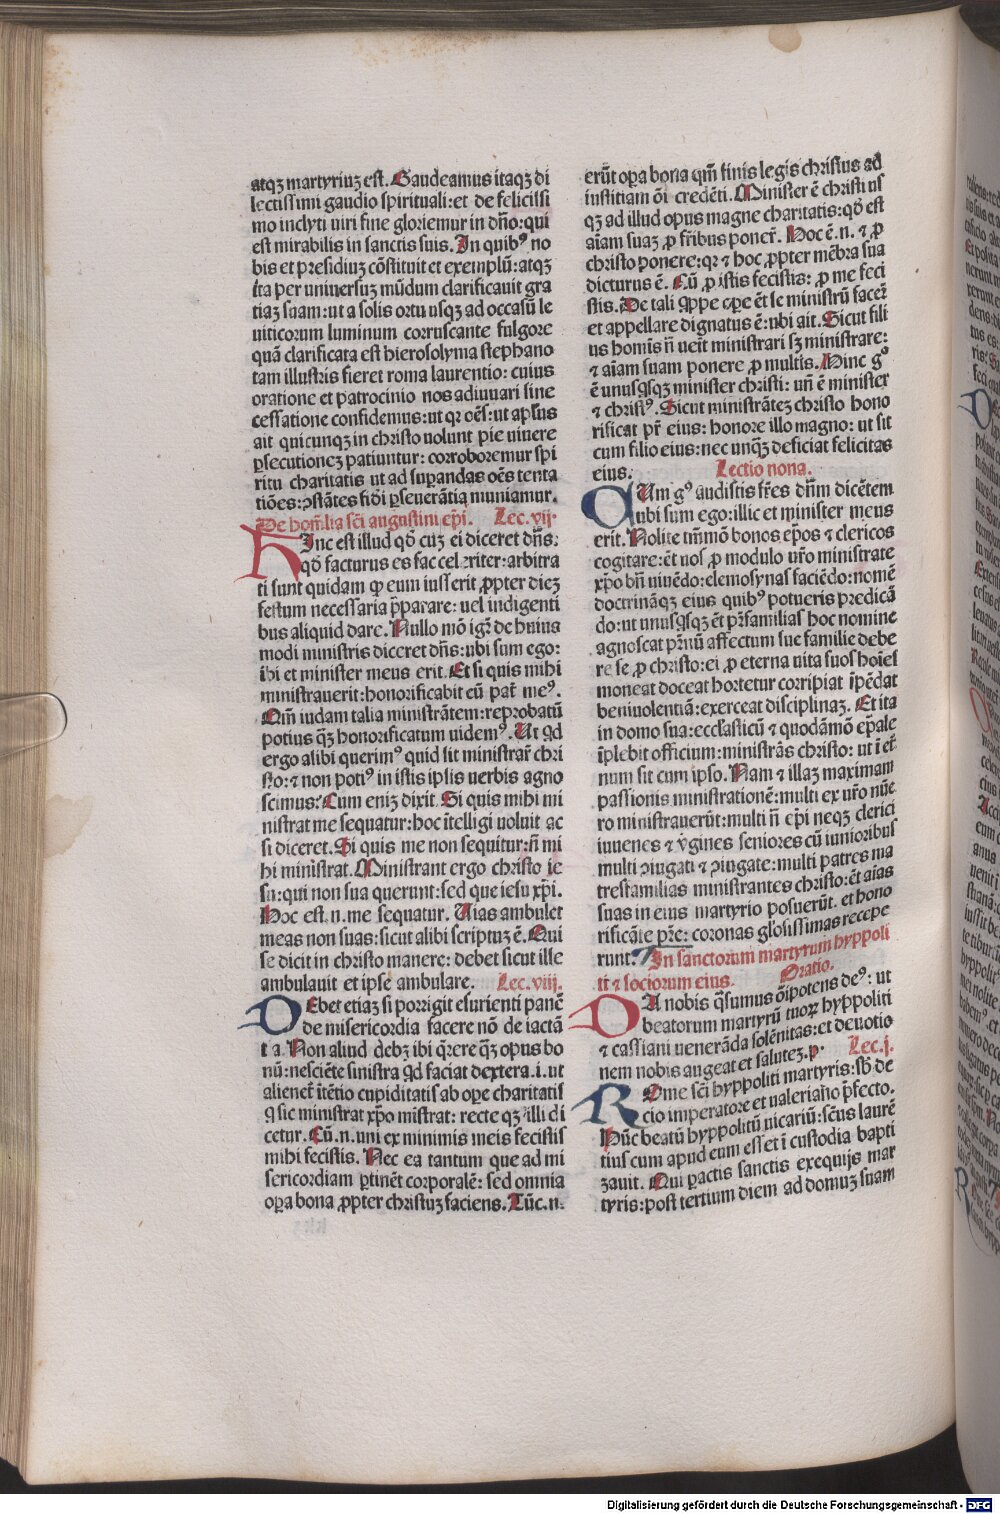 atqꝫ martyriuꝫ est. Gaudeamus itaqꝫ di
lectissimi gaudio spirituali: et de felicissi
mo inclyti uiri fine gloriemur in dño: qui
est mirabilis in sanctis suis. In quibꝰ no
bis et presidiuꝫ cõstituit et exemplũ: atqꝫ
ita per uniuersuꝫ mũdum clarificauit gra
tiaꝫ suam: ut a solis ortu usqꝫ ad occasũ le
uiticorum luminum corruscante fulgore
quã clarificata est hierosolyma stephano
tam illustris fieret roma laurentio: cuius
oratione et patrocinio nos adiuuari sine
cessatione confidemus: ut qꝛ oẽs: ut apl̃us
ait quicunqꝫ in christo uolunt pie uiuere
ꝑsecutioneꝫ patiuntur: corroboremur spi
ritu charitatis ut ad suꝑandas oẽs tenta
tiões: ꝯstãtes fidei ꝑseuerãtia muniamur.
De homelia sc̃i augustini ep̃i. Lec. vij.
HInc est illud qd̃ cuꝫ ei diceret dñs:
qd̃ facturus es fac celeriter: arbitra
ti sunt quidam ꝙ eum iusserit ꝓpter dieꝫ
festum necessaria p̃parare: uel indigenti
bus aliquid dare. Nullo mõ igr̃ de huius
modi ministris diceret dñs: ubi sum ego:
ibi et minister meus erit. Et si quis mihi
ministrauerit: honorificabit eũ pat̃ meꝰ.
Qm̃ iudam talia ministrãtem: reprobatũ
potius qꝫ̃ honorificatum uidemꝰ. Ut qd
ergo alibi querimꝰ quid sit ministrar̃ chri
sto: ⁊ non potiꝰ in istis ipsis uerbis agno
scimus? Cum eniꝫ dixit. Si quis mihi mi
nistrat me sequatur: hoc ĩtelligi uoluit ac
si diceret. Si quis me non sequitur: ñ mi
hi ministrat. Ministrant ergo christo ie
su: qui non sua querunt: sed que iesu xp̃i.
Hoc est. n. me sequatur. Uias ambulet
meas non suas: sicut alibi scriptuꝫ ẽ. Qui
se dicit in christo manere: debet sicut ille
ambulauit et ipse ambulare. Lec. viij.
DEbet etiaꝫ si porrigit esurienti panẽ
de misericordia facere nõ de iactã
tia. Non aliud debꝫ ibi q̃rere qꝫ̃ opus bo
nũ: nesciẽte sinistra qd faciat dextera. i. ut
alienet̃ ĩtẽtio cupiditatis ab oꝑe charitatis
ꝗ sic ministrat xp̃o mĩstrat: recte qꝫ illi di
cetur. Cũ. n. uni ex minimis meis fecistis
mihi fecistis. Nec ea tantum que ad mi
sericordiam ꝑtinẽt corporalẽ: sed omnia
oꝑa bona ꝓpter christuꝫ faciens. Tũc. n.
erũt oꝑa bona qm̃ finis legis christus ad
iustitiam õi credẽti. Minister ẽ christi us
qꝫ ad illud opus magne charitatis: qd̃ est
aĩam suaꝫ ꝓ fr̃ibus poner̃. Hoc ẽ. n. ⁊ ꝓ
christo ponere: qꝛ ⁊ hoc ꝓpter mẽbra sua
dicturus ẽ. Cũ ꝓ istis fecistis: ꝓ me feci
stis. De tali ꝗppe oꝑe ẽt se ministrũ facer̃
et appellare dignatus ẽ: ubi ait. Sicut fili
us homĩs ñ ueĩt ministrari sꝫ ministrare:
⁊ aĩam suam ponere ꝓ multis. Hinc gͦ
ẽ unusꝗsqꝫ minister christi: uñ ẽ minister
⁊ christꝰ. Sicut ministrãteꝫ christo hono
rificat pr̃ eius: honore illo magno: ut sit
cum filio eius: nec unqꝫ̃ deficiat felicitas
eius. Lectio nona.
CUm gͦ audistis fr̃es dñm dicẽtem
ubi sum ego: illic et minister meus
erit. Nolite tm̃mõ bonos ep̃os ⁊ clericos
cogitare: ẽt uos ꝓ modulo ur̃o ministrate
xp̃o bñ uiuẽdo: elemosynas faciẽdo: nomẽ
doctrinãqꝫ eius quibꝰ potueris predicã
do: ut unusꝗsqꝫ ẽt pr̃familias hoc nomine
agnoscat pr̃nũ affectum sue familie debe
re se ꝓ christo: ei ꝓ eterna uita suos hoĩes
moneat doceat hortetur corripiat ĩpẽdat
beniuolentiã: exerceat disciplinaꝫ. Et ita
in domo sua: eccl̃asticũ ⁊ quodãmõ ep̃ale
ĩplebit officium: ministrãs christo: ut ĩ et̃
num sit cum ipso. Nam ⁊ illaꝫ maximam
passionis ministrationẽ: multi ex ur̃o nũe
ro ministrauerũt: multi ñ ep̃i neqꝫ clerici
iuuenes ⁊ v̈gines seniores cũ iunioribus
multi ꝯiugati ⁊ ꝯiugate: multi patres ma
tresfamilias ministrantes christo: ẽt aĩas
suas in eius martyrio posuerũt. et hono
rificãte pr̃e: coronas gl̃osissimas recepe
runt. In sanctorum martyrum hyppoli
ti ⁊ sociorum eius. Oratio.
DA nobis q̃sumus õĩpotens deꝰ: ut
beatorum martyrũ tuoꝝ hyppoliti
⁊ cassiani uenerãda solẽnitas: et deuotio
nem nobis augeat et saluteꝫ. p. Lec. j.
ROme sc̃i hyppoliti martyris: sb̃ de
cio imperatore et ualeriano p̃fecto.
Hũc beatũ hyppolitũ uicariũ: sc̃us laurẽ
tius cum apud eum esset ĩ custodia bapti
ꝫauit. Qui ꝑactis sanctis exequijs mar
tyris: post tertium diem ad domuꝫ suam
Digitalisierung gefördert durch die Deutsche Forschungsgemeinschaft - DFG